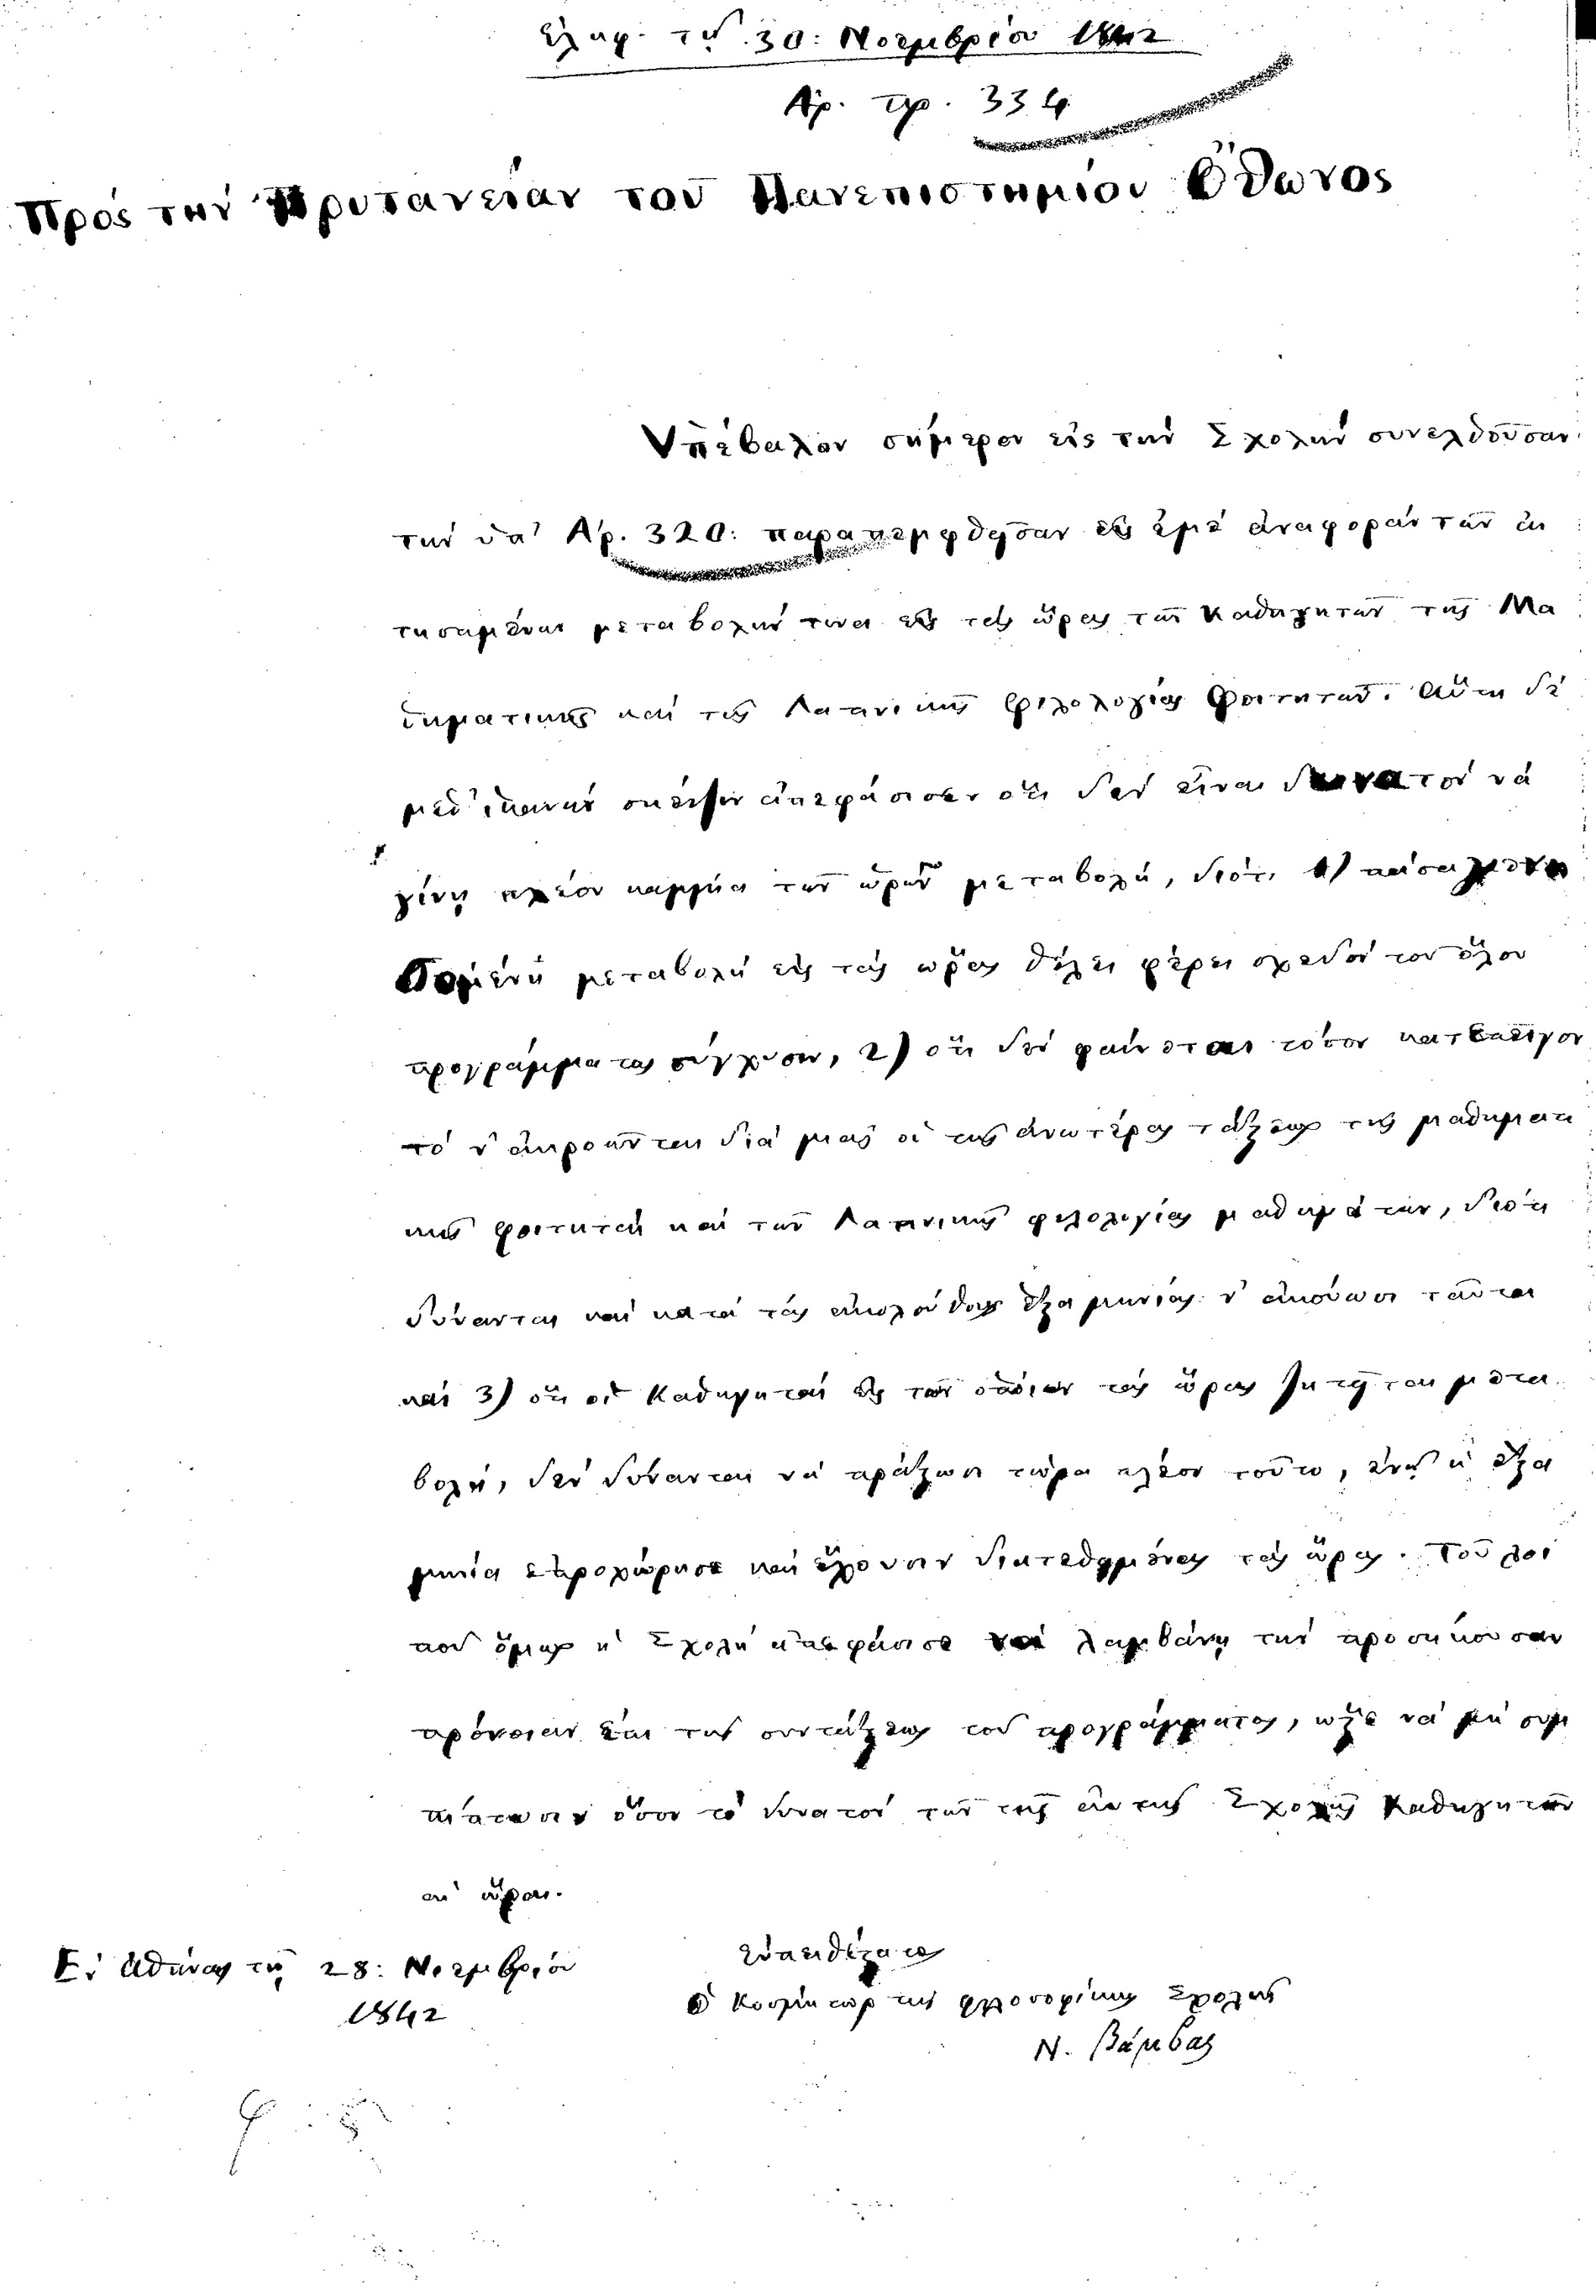 Ἐλήφ. τῇ 30: Νοεμβρίου 1842
Ἀρ. πρ. 334
Πρὸς τὴν Πρυτανείαν τοῦ Πανεπιστημίου Ὄθωνος
Ὑπέβαλον σήμερον εἰς τὴν Σχολὴν συνελθοῦσαν
τὴν ὑπ' Ἀρ. 320: παραπεμφθεῖσαν εἰς ἐμὲ ἀναφορὰν τῶν αἰ
τησαμένων μεταβολήν τινα εἰς τὰς ὥρας τῶν Καθηγητῶν τῆς Μα
θηματικῆς καὶ τῆς Λατινικῆς φιλολογίας Φοιτητῶν. Αὕτη δὲ
μεθ' ἱκανὴν σκέψιν ἀπεφάσισεν ὅτι δὲν εἶναι δυνατὸν νὰ
γίνῃ πλέον καμμία τῶν ὡρῶν μεταβολή, διότι 1) πᾶσα
μεταβολὴ εἰς τὰς ὥρας θέλει φέρει σχεδὸν τοῦ ὅλου
προγράμματος σύγχυσιν, 2) ὅτι δὲν φαίνεται τόσον κατεπεῖγον
τὸ ν' ἀκροῶνται διὰ μιᾶς οἱ τῆς ἀνωτέρας τάξεως τῆς μαθηματι
κῆς φοιτηταὶ καὶ τῶν Λατινικῆς φιλολογίας μαθημάτων, διότι
δύνανται καὶ κατὰ τὰς ἀκολούθους ἑξαμηνίας ν' ἀκούωσι ταῦτα
καὶ 3) ὅτι οἱ Καθηγηταὶ εἰς τῶν ὁποίων τὰς ὥρας ζητεῖται μετα
βολή, δὲν δύνανται νὰ πράξωσι τώρα πλέον τοῦτο, ἐνῷ ἡ ἑξα
μηνία ἐπροχώρησε καὶ ἔχουσιν διατεθημένας τὰς ὥρας. Τοῦ λοι
ποῦ ὅμως ἡ Σχολὴ ἀπεφάσισε νὰ λαμβάνῃ τὴν προσήκουσαν
πρόνοιαν ἐπὶ τῆς συντάξεως τοῦ προγράμματος, ὥστε νὰ μὴ συμ
πίπτωσιν ὅσον τὸ δυνατὸν τῶν τῆς αὐτῆς Σχολῆς Καθηγητῶν
αἱ ὧραι.
Ἐν Ἀθήναις τῇ 28: Νοεμβρίου
1842
εὐπειθέστατος
Ὁ Κοσμήτωρ τῆς Φιλοσοφικῆς Σχολῆς
Ν. Βάμβας